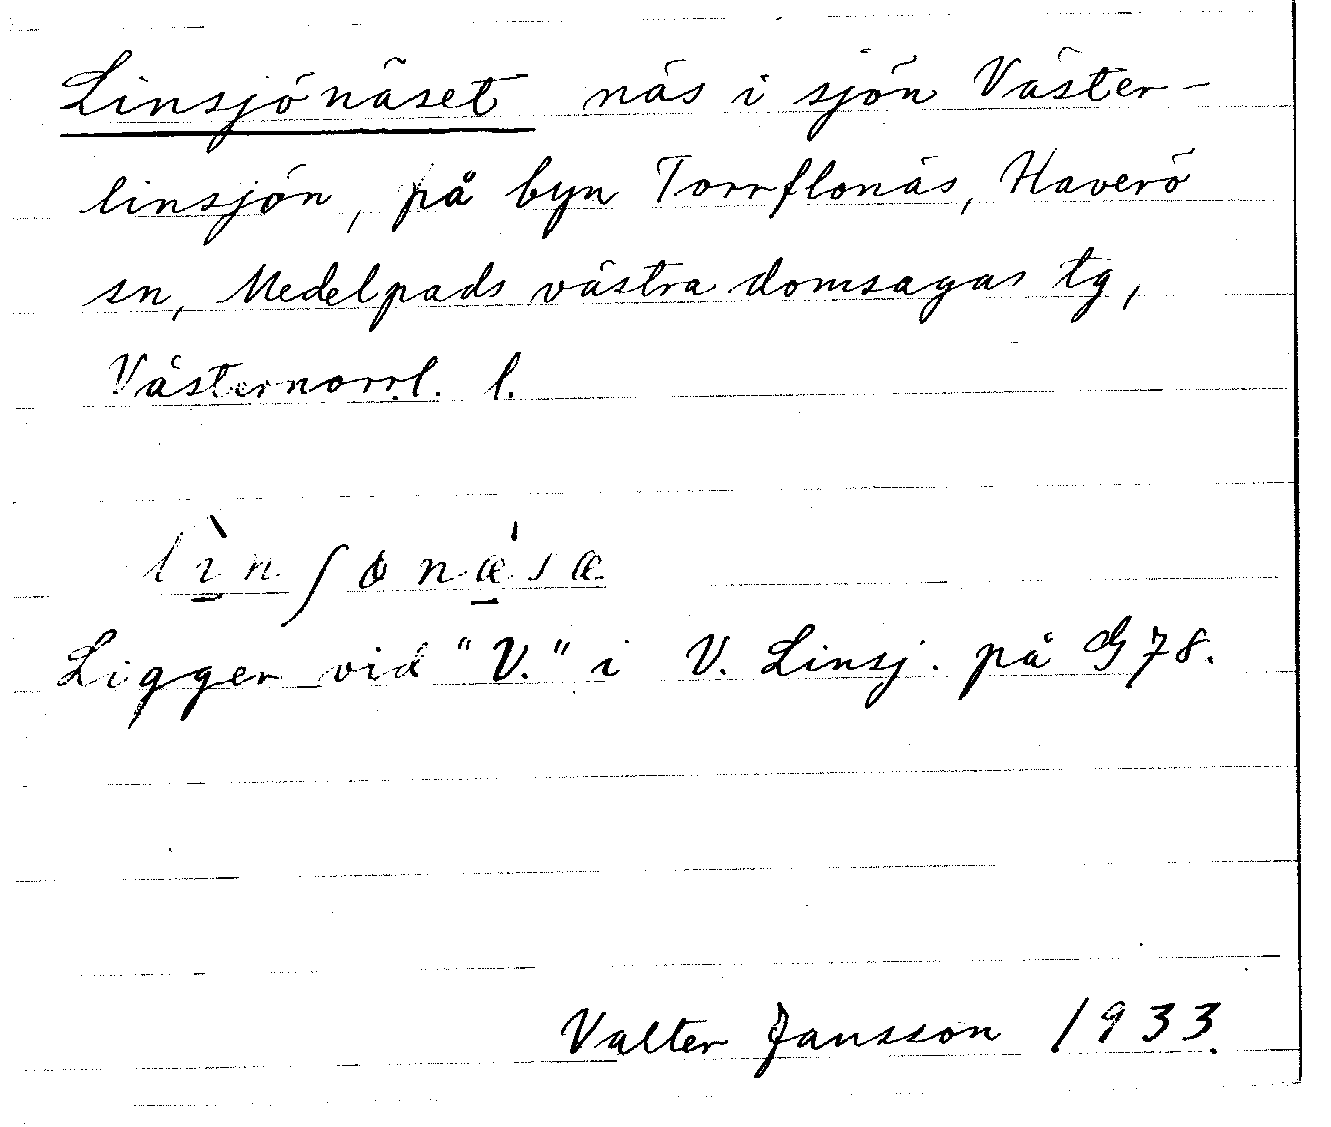 Linsjönäset näs i sjön Väster-
linsjön, på byn Torrflonäs, Haverö
sn, Medelpads västra domsagas tg,
Västernorrl. l.
lìnʃonæ'sæ
Ligger vid "V." i V. Linsj. på G 78.
Valter Jansson 1933.